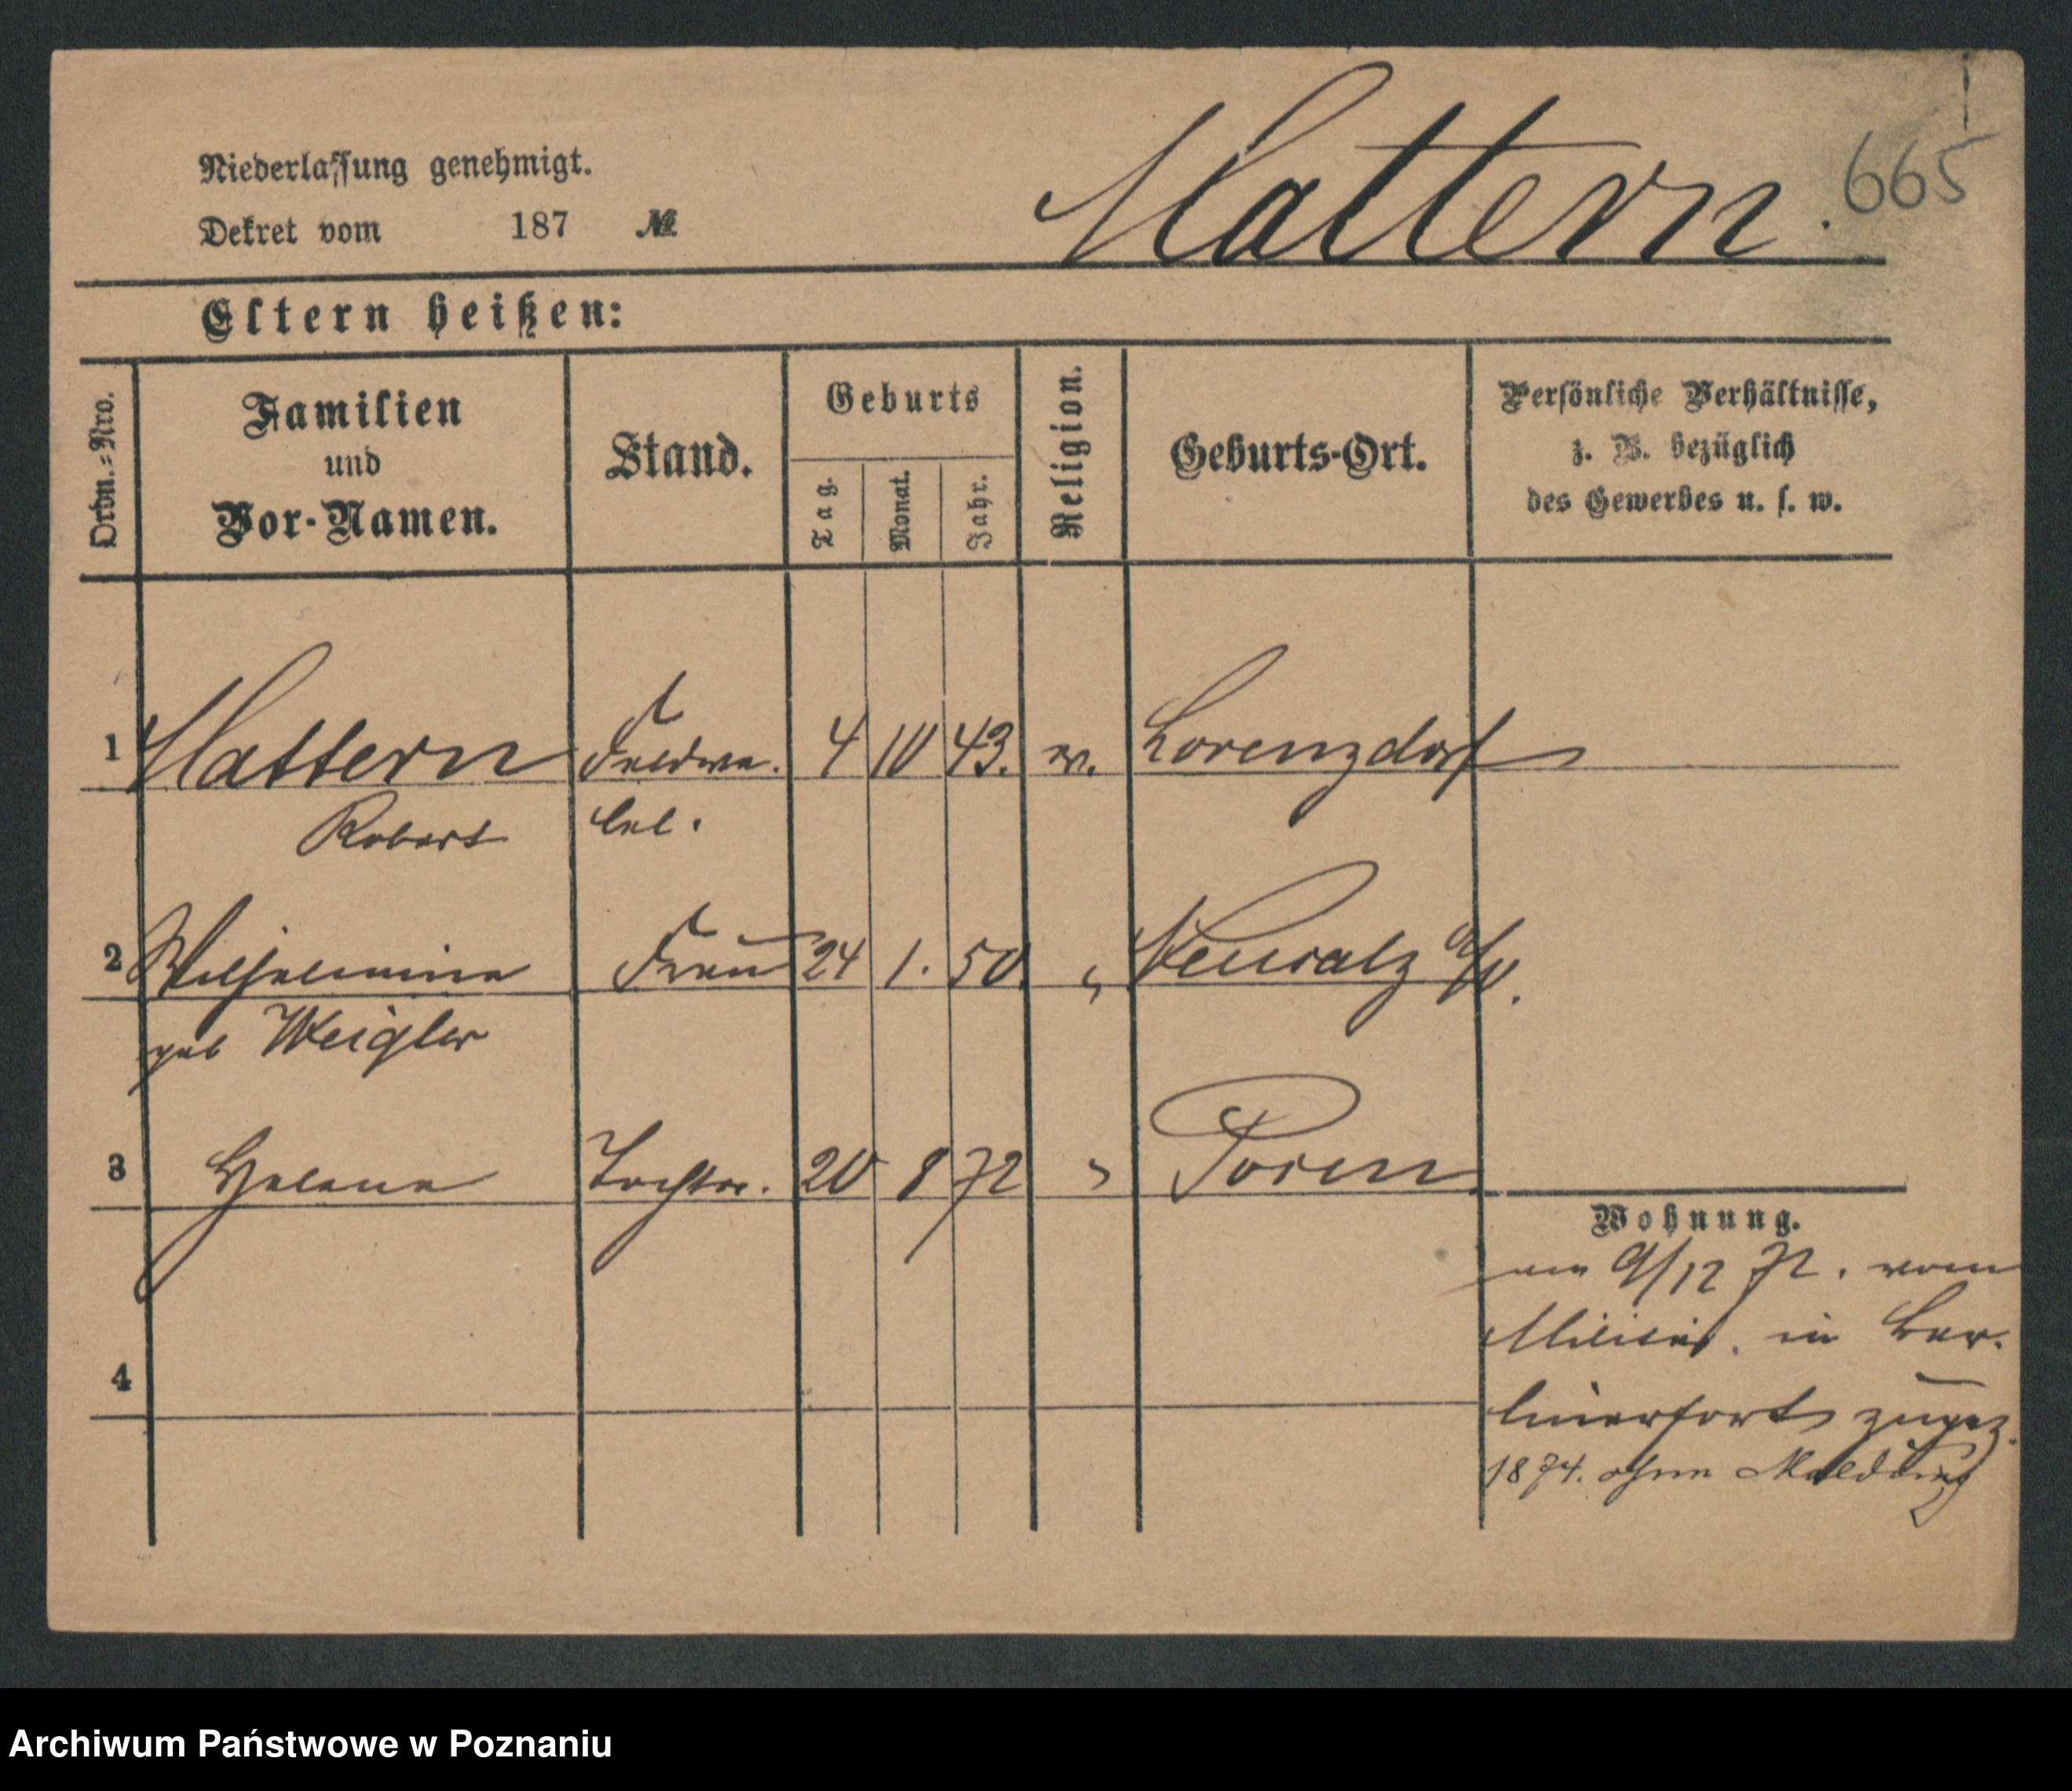 Mattern. 665
Niederlassung genehmigt.
Dekret vom 187 №
Eltern heißen:
Ordn.=Nro.
Familien
und
Vor-Namen.
Stand.
Geburts
Tag.
Monat.
Jahr.
Religion.
Geburts-Ort.
Persönliche Verhältnisse,
z. B. bezüglich
des Gewerbes u. s. w.
1 Mattern Feldwe. 4 10 43. ev. Lorenzdorf
Robert bel.
2 Wilhelmine Frau 24 1. 50. " Neusalz a/O.
geb Weigler
3 Helene Tochter. 20 8 72 " Posen
Wohnung.
am 9/12 72. vom
Militär. in Ber-
linerfort zugez.
4
1874. ohne Meldung
Archiwum Państwowe w Poznaniu